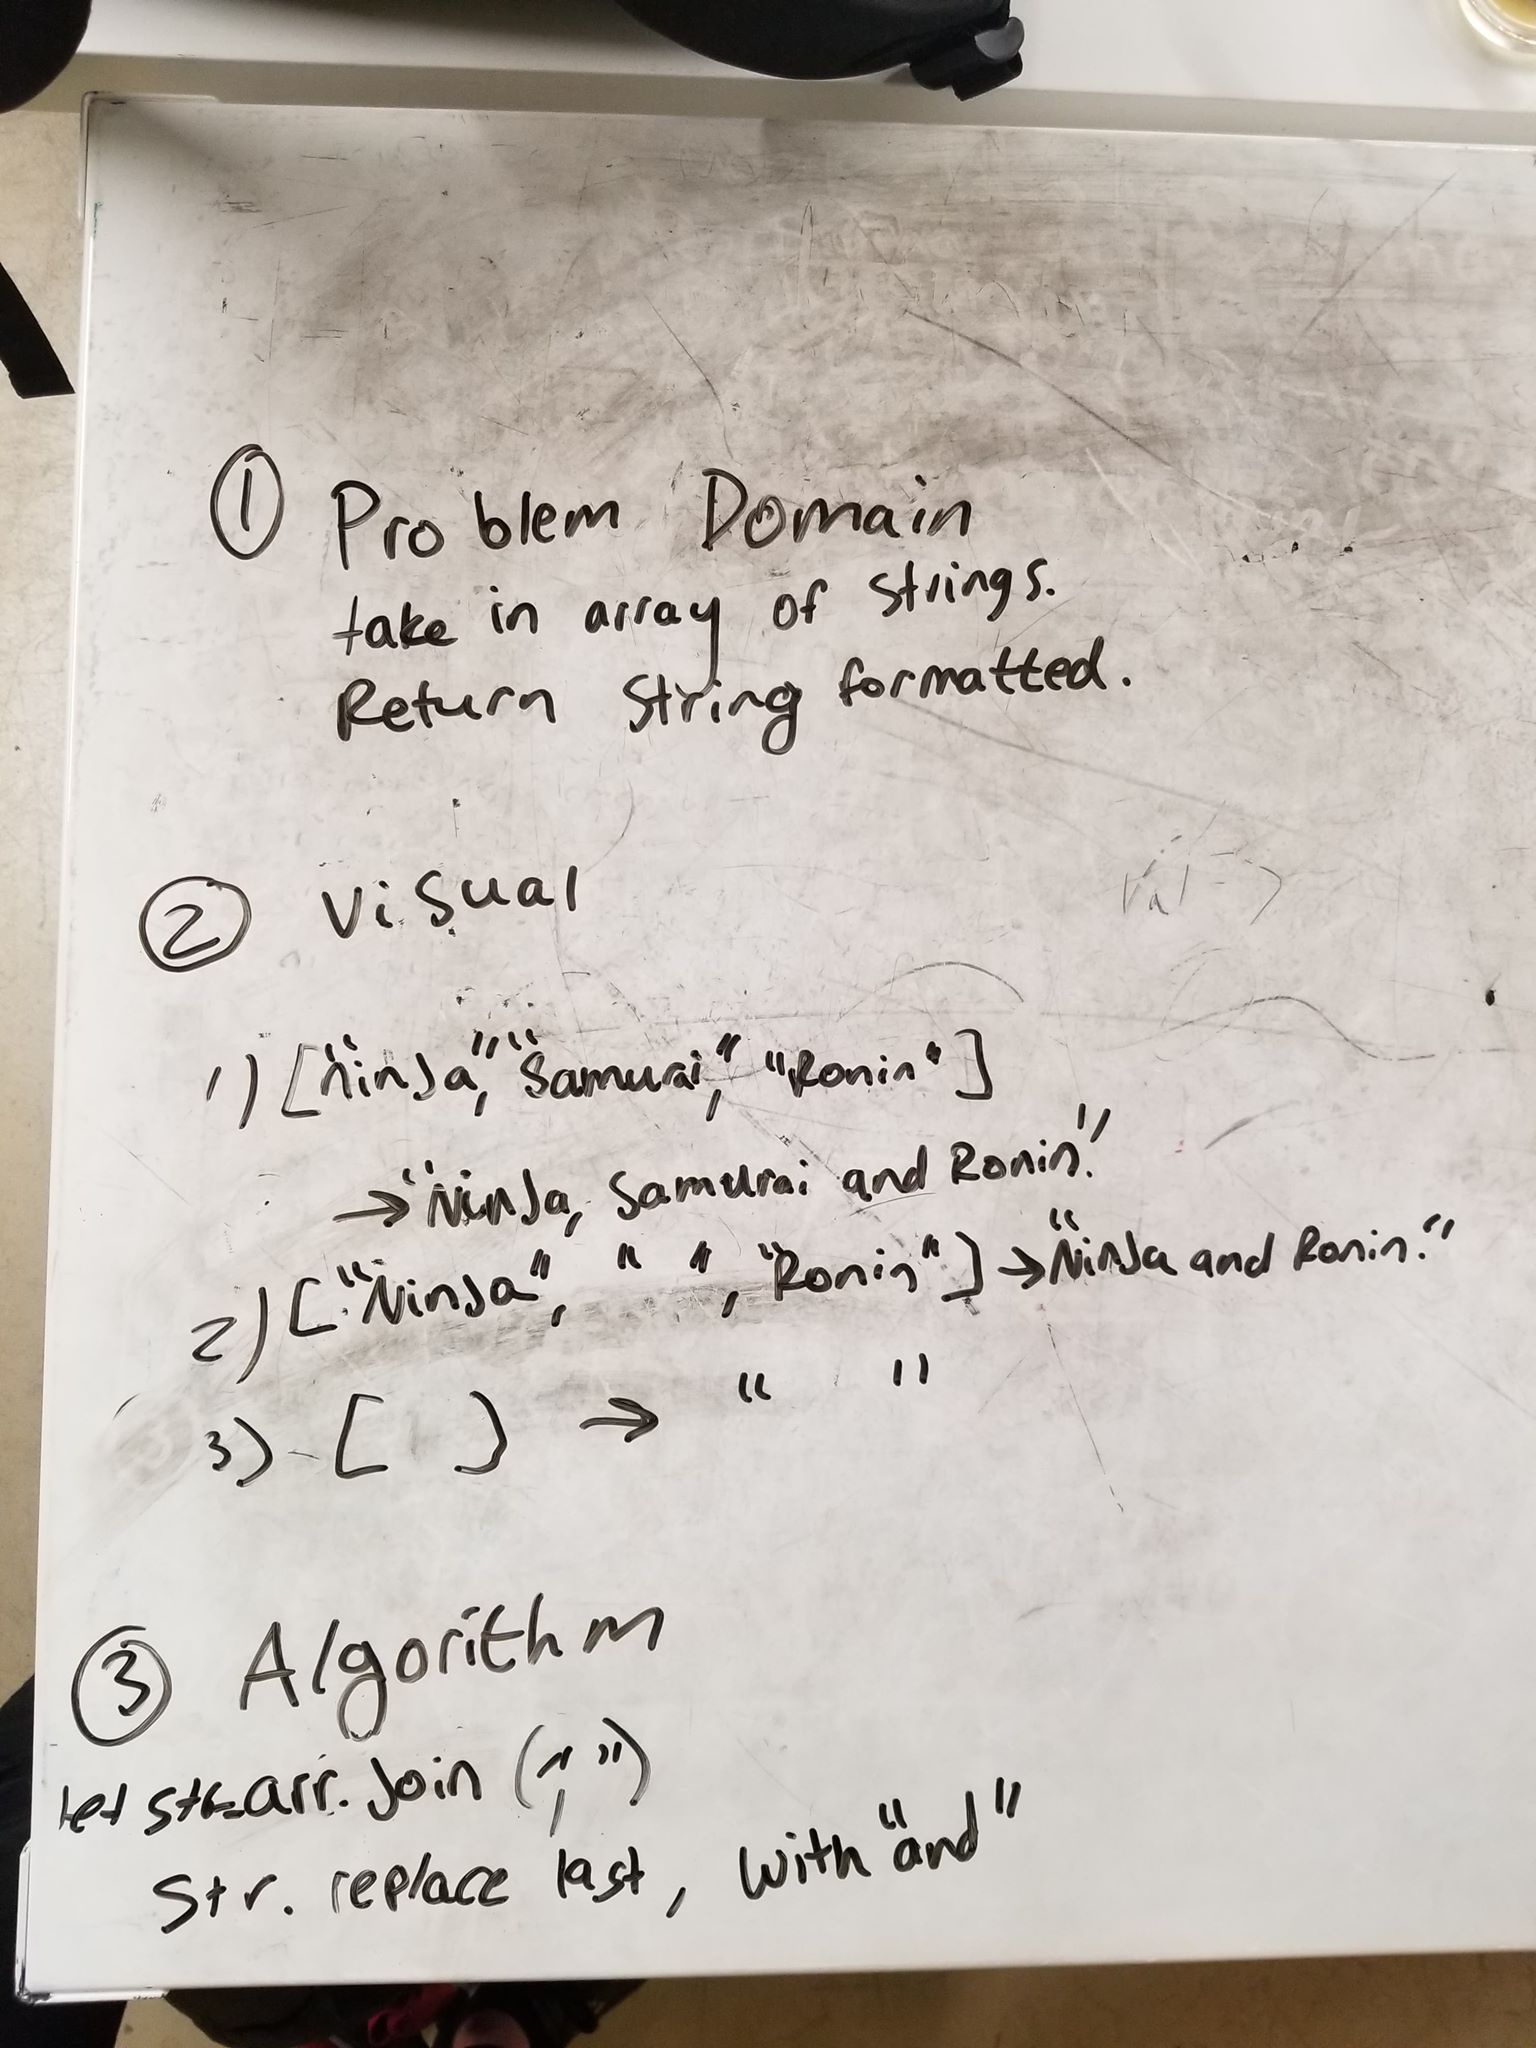 ① Problem Domain
take in array of strings.
Return String formatted.
② Visual
1) ["Ninja," "Samurai," "Ronin"]
→ "Ninja, Samurai and Ronin."
2) ["Ninja", " ", "Ronin"] → "Ninja and Ronin."
3) [ ] → " "
③ Algorithm
let str=arr.Join (",")
Str. replace last , with "and"